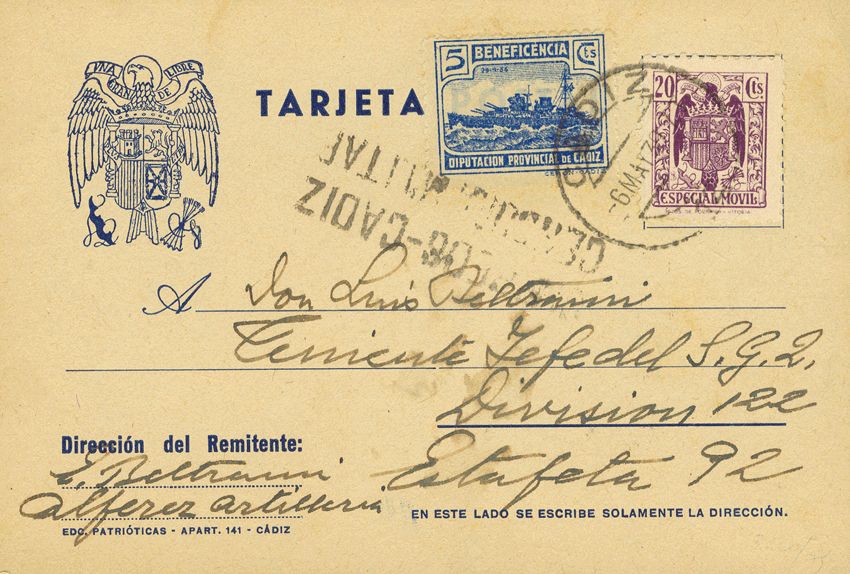 UNA GRANDE LIBRE
TARJETA
5 BENEFICENCIA Cts
29-9-36
DIPUTACION PROVINCIAL DE CADIZ
20 Cts
ESPECIAL MOVIL
CADIZ
6 MAYZ
CADIZ
MILITAR
A Don Luis Beltrami
Teniente Jefe del S.G.2.
Division 122
Estafeta 92
Dirección del Remitente:
E. Beltrami
alferez artilleria
EDC. PATRIÓTICAS - APART. 141 - CÁDIZ
EN ESTE LADO SE ESCRIBE SOLAMENTE LA DIRECCIÓN.